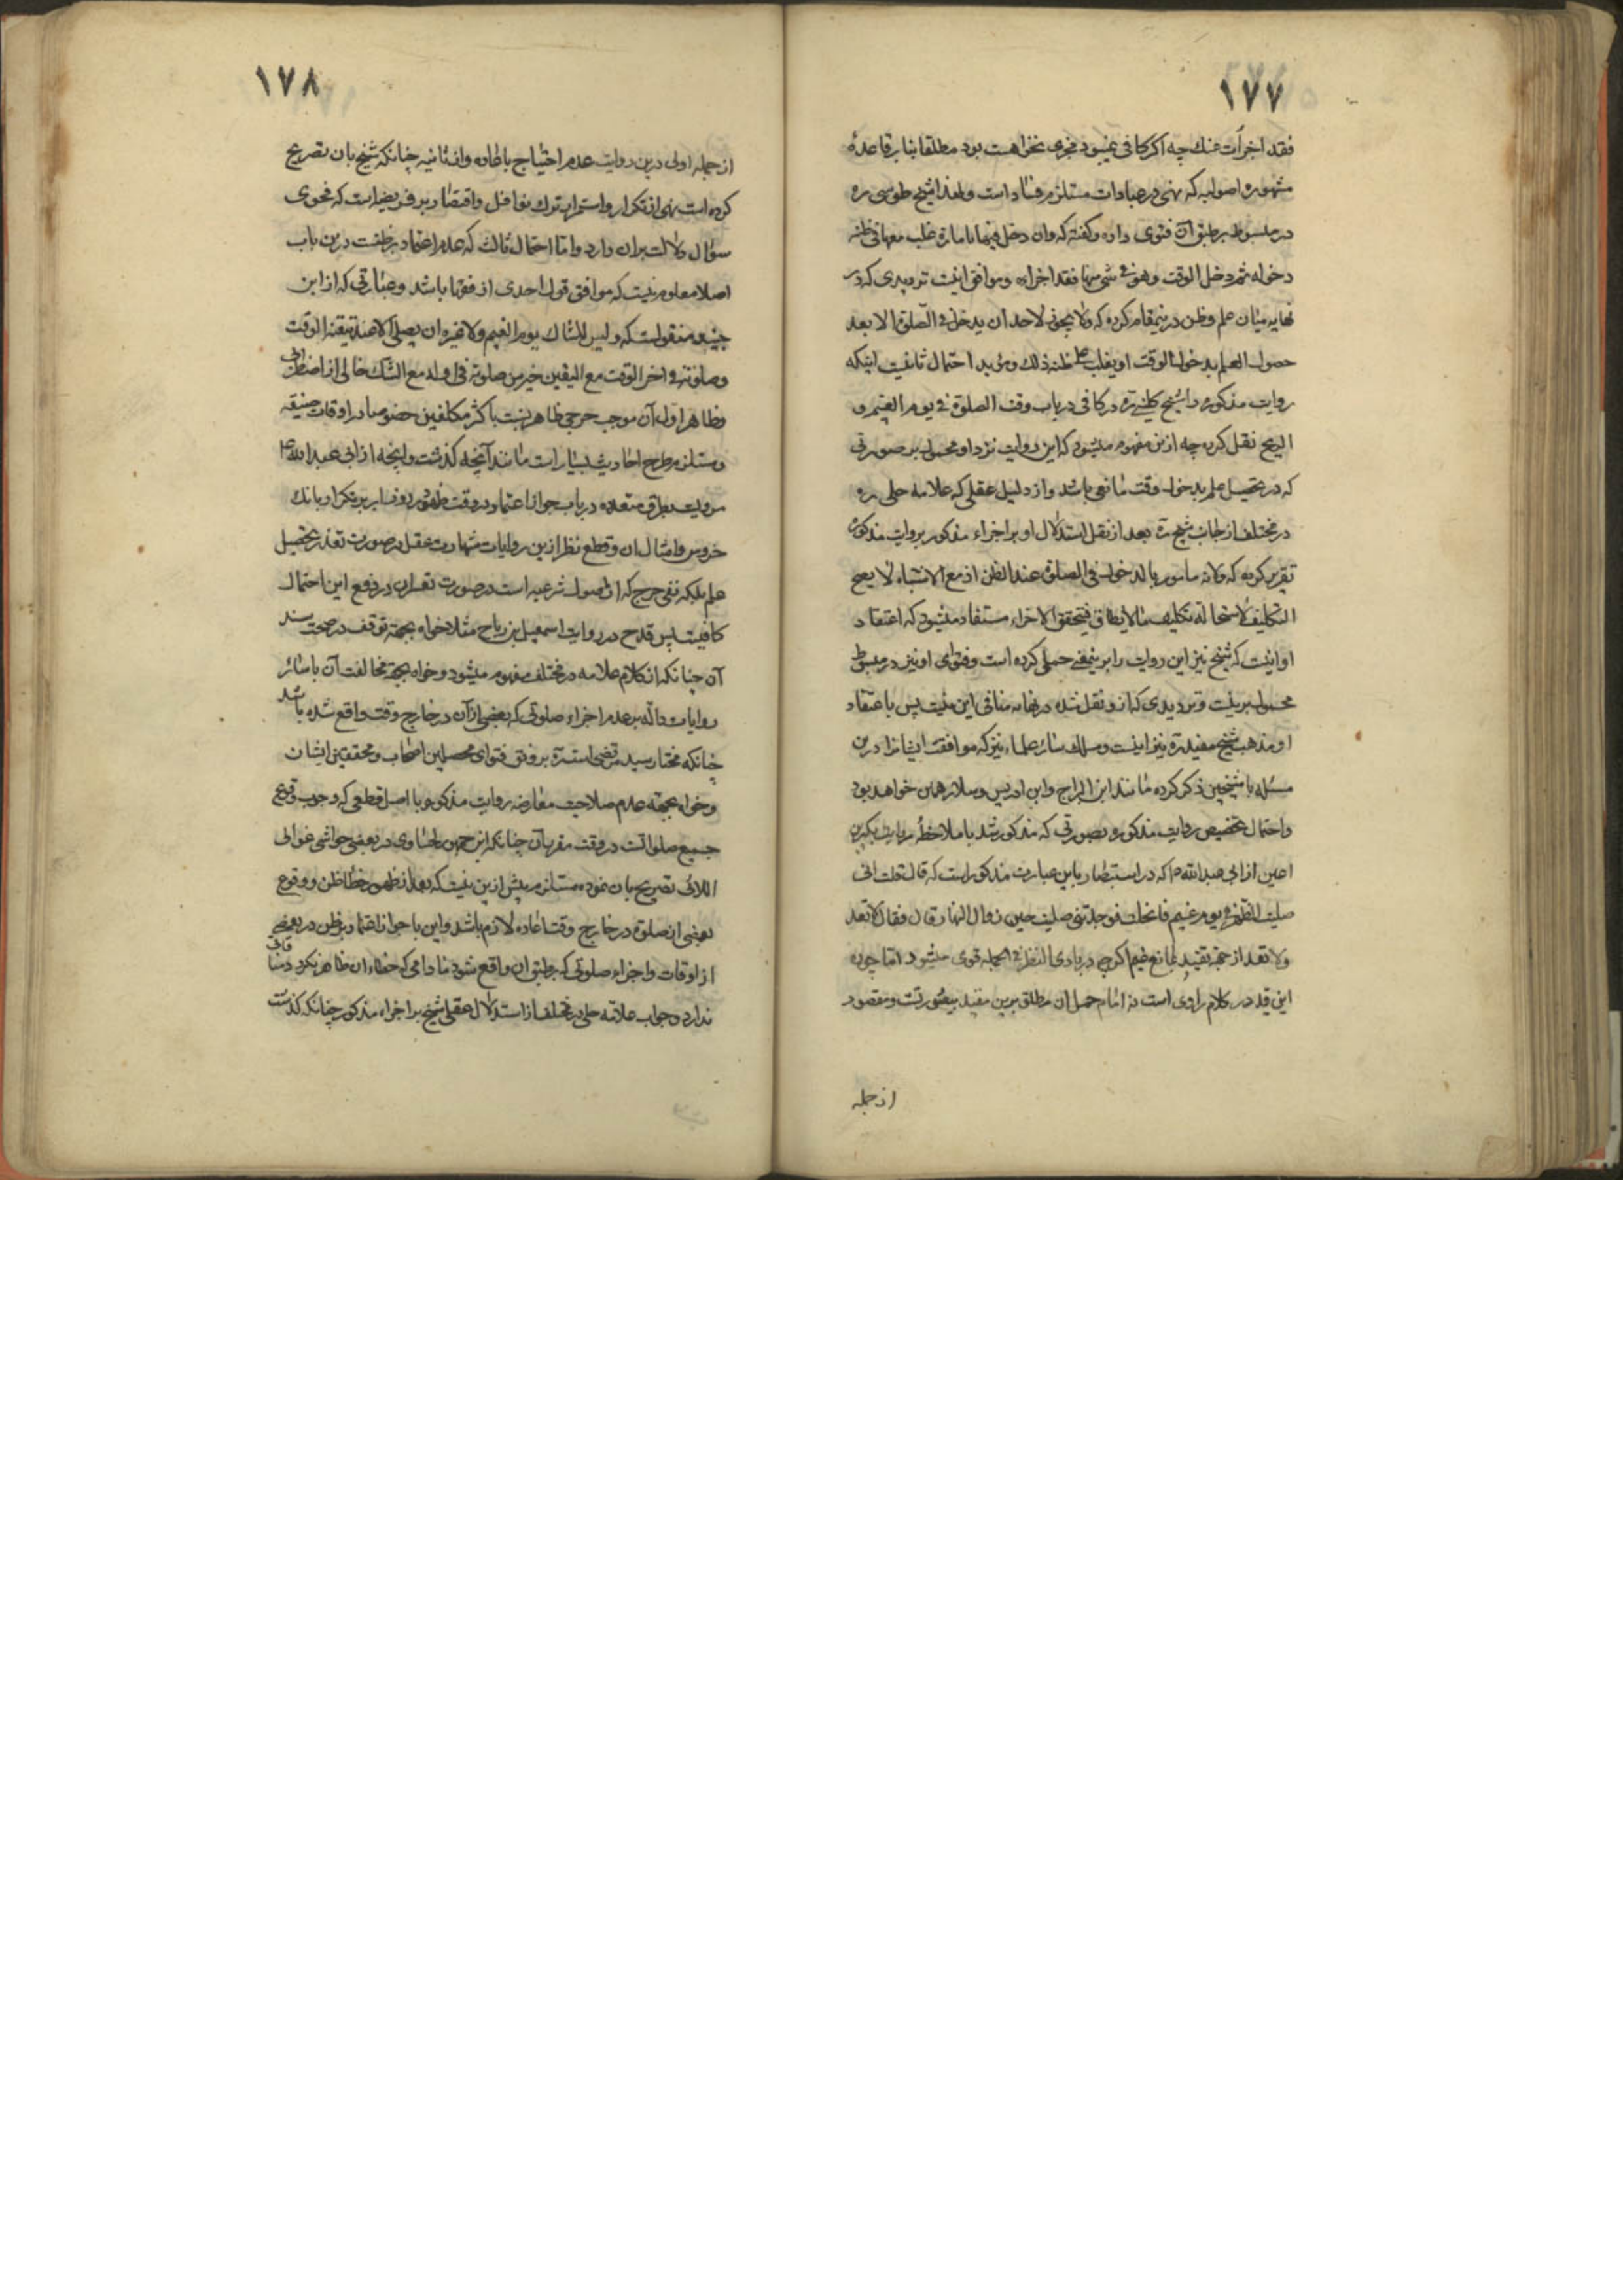 ۱۷۷
فقد اجزأت عنك چه اگر کافی نمیبود مجزی نخواهست بود مطلقا بنابر قاعدهٔ
مشهوره اصولیه که نهی در عبادات مستلزم فساد است و لهذا شیخ طوسی ره
در مبسوط بر طبق آن فتوی داده و گفته که وان دخل فیها بامارة غلب معها فی ظنه
دخوله ثم دخل الوقت وهو فی شی منها فقد اجزاه و موافق اینست تردیدی که در
نهایه میان علم و ظن درینمقام کرده که ولا یجوز لاحد ان یدخل فی الصلوة الا بعد
حصول العلم بدخول الوقت او یغلب علی ظنه ذلك و مؤید احتمال ثانیست اینکه
روایت مذکوره را شیخ کلینی ره در کافی در باب وقت الصلوة فی یوم الغیم و
الریح نقل کرده چه ازین مفهوم میشود که این روایت نزد او محمول بر صورتی
که در تحصیل علم بدخول وقت مانعی باشد و از دلیل عقلی که علامه حلی ره
در مختلف از جانب شیخ ره بعد از نقل استدلال او بر اجزاء مذکور بروایت مذکوره
تقریر کرده که ولانه مامور بالدخول فی الصلوة عند الظن اذ مع الاشتباه لا یصح
التکلیف لاستحالة تکلیف ما لا یطاق فیتحقق الاجزاء مستفاد میشود که اعتقاد
او اینست که شیخ نیز این روایت را برینمعنی حمل کرده است و فتوای او نیز در مبسوط
محمول برینست و تردیدی که ازو نقل شده در نهایه منافی این نیست پس باعتقاد
او مذهب شیخ مفید ره نیز اینست و مسلك سائر علماء نیز که موافقت ایشانرا درین
مسئله با شیخین ذکر کرده مانند ابن البراج و ابن ادریس و سلار همین خواهد بود
و احتمال تخصیص روایت مذکوره بصورتی که مذکور شد با ملاحظهٔ روایت بکیر بن
اعین از ابی عبد الله ع که در استبصار باین عبارت مذکور است که قال قلت انی
صلیت الظهر فی یوم غیم فانجلت فوجدتنی صلیت حین زوال النهار قال فقال لا تعد
ولا تعد از جهة تقیید بمانع غیم اگرچه در بادی النظر فی الجمله قوی میشود اما چون
این قید در کلام راوی است نه امام حمل ان مطلق برین مقید بیصورتست و مقصود
از جمله
۱۷۸
از جمله اولی درین روایت عدم احتیاج باعاده و از ثانیه چنانکه شیخ بان تصریح
کرده است نهی از تکرار و استمرار ترك نوافل و اقتصار بر فریضه است که فحوی
سؤال دلالت بران دارد و اما احتمال ثالث که عدم اعتماد بر ظنست درین باب
اصلا معلوم نیست که موافق قول احدی از فقها باشد و عبارتی که از ابن
جنید منقولست که ولیس للشاك یوم الغیم ولا غیره ان یصلی الا عند تیقنه الوقت
وصلوته فی اخر الوقت مع الیقین خیر من صلوته فی اوله مع الشك خالی از اضطرابی
و ظاهر اول آن موجب حرجی ظاهر نسبت باکثر مکلفین خصوصا در اوقات ضیقه
و مستلزم طرح احادیث بسیار است مانند آنچه گذشت و انچه از ابی عبد الله ع
مرویست بطرق متعدده در باب جواز اعتماد در وقت ظهر در روز ابر بر تکرار بانك
خروس و امثال ان و قطع نظر ازین روایات شهادت عقل در صورت تعذر تحصیل
علم بلکه نفی حرج که از اصول شرعیه است در صورت تعسر ان در دفع این احتمال
کافیست پس قدح در روایت اسمعیل بن رباح مثلا خواه بجهة توقف در صحت سند
آن چنانکه از کلام علامه در مختلف مفهوم میشود و خواه بجهة مخالفت آن با سائر
روایات داله بر عدم اجزاء صلوتی که بعضی از آن در خارج وقت واقع شده باشد
چنانکه مختار سید مرتضی است ره بر وفق فتوای محصلین اصحاب و محققین ایشان
و خواه بجهة عدم صلاحیت معارضه روایت مذکوره با اصل قطعی که وجوب وقوع
جمیع صلواتست در وقت مقرر آن چنانکه ابن جمهور لحساوی در بعضی حواشی غوالی
اللآلی تصریح بان نموده مستلزم بیش ازین نیست که بعد از ظهور خطا ظن و وقوع
بعضی از صلوة در خارج وقت اعاده لازم باشد و این با جواز اعتماد بر ظن در بعضی
از اوقات و اجزاء صلوتی که بر طبق ان واقع شود مادامی که خطاء ان ظاهر نگردد منافاتی
ندارد و جواب علامه حلی در مختلف از استدلال عقلی شیخ بر اجزاء مذکور چنانکه گذشت